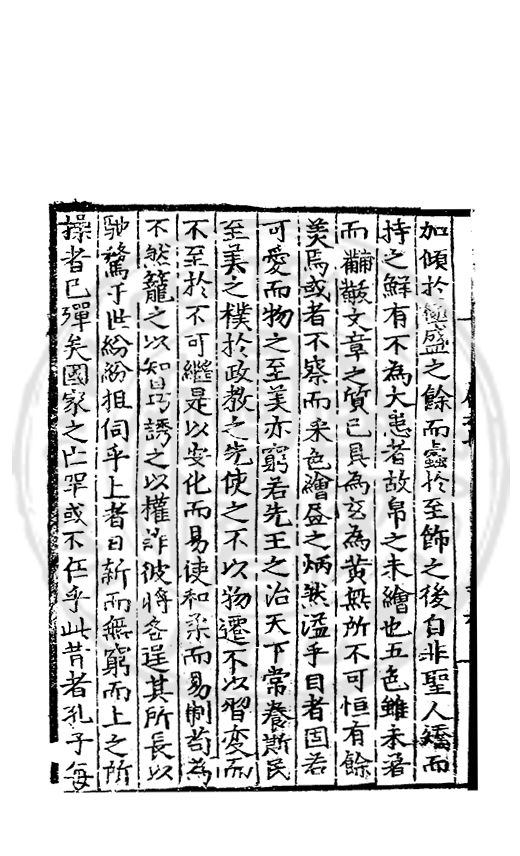 加傾於極盛之餘而蠱於至飾之後自非聖人矯而
持之鮮有不為大患者故帛之未繪也五色雖未著
而黼黻文章之質已具為玄為黃無所不可恒有餘
美焉或者不察而采色繪盛之炳然溢乎目者固若
可愛而物之至美亦窮若先王之治天下常養斯民
至美之樸於政教之先使之不以物遷不以習变而
不至於不可繼是以安化而易使和柔而易制苟為
不然籠之以知巧誘之以權詐彼將各逞其所長以
馳騖于世紛紛狙伺乎上者日新而無窮而上之所
操者已殫矣國家之亡罕或不在乎此昔者孔子每